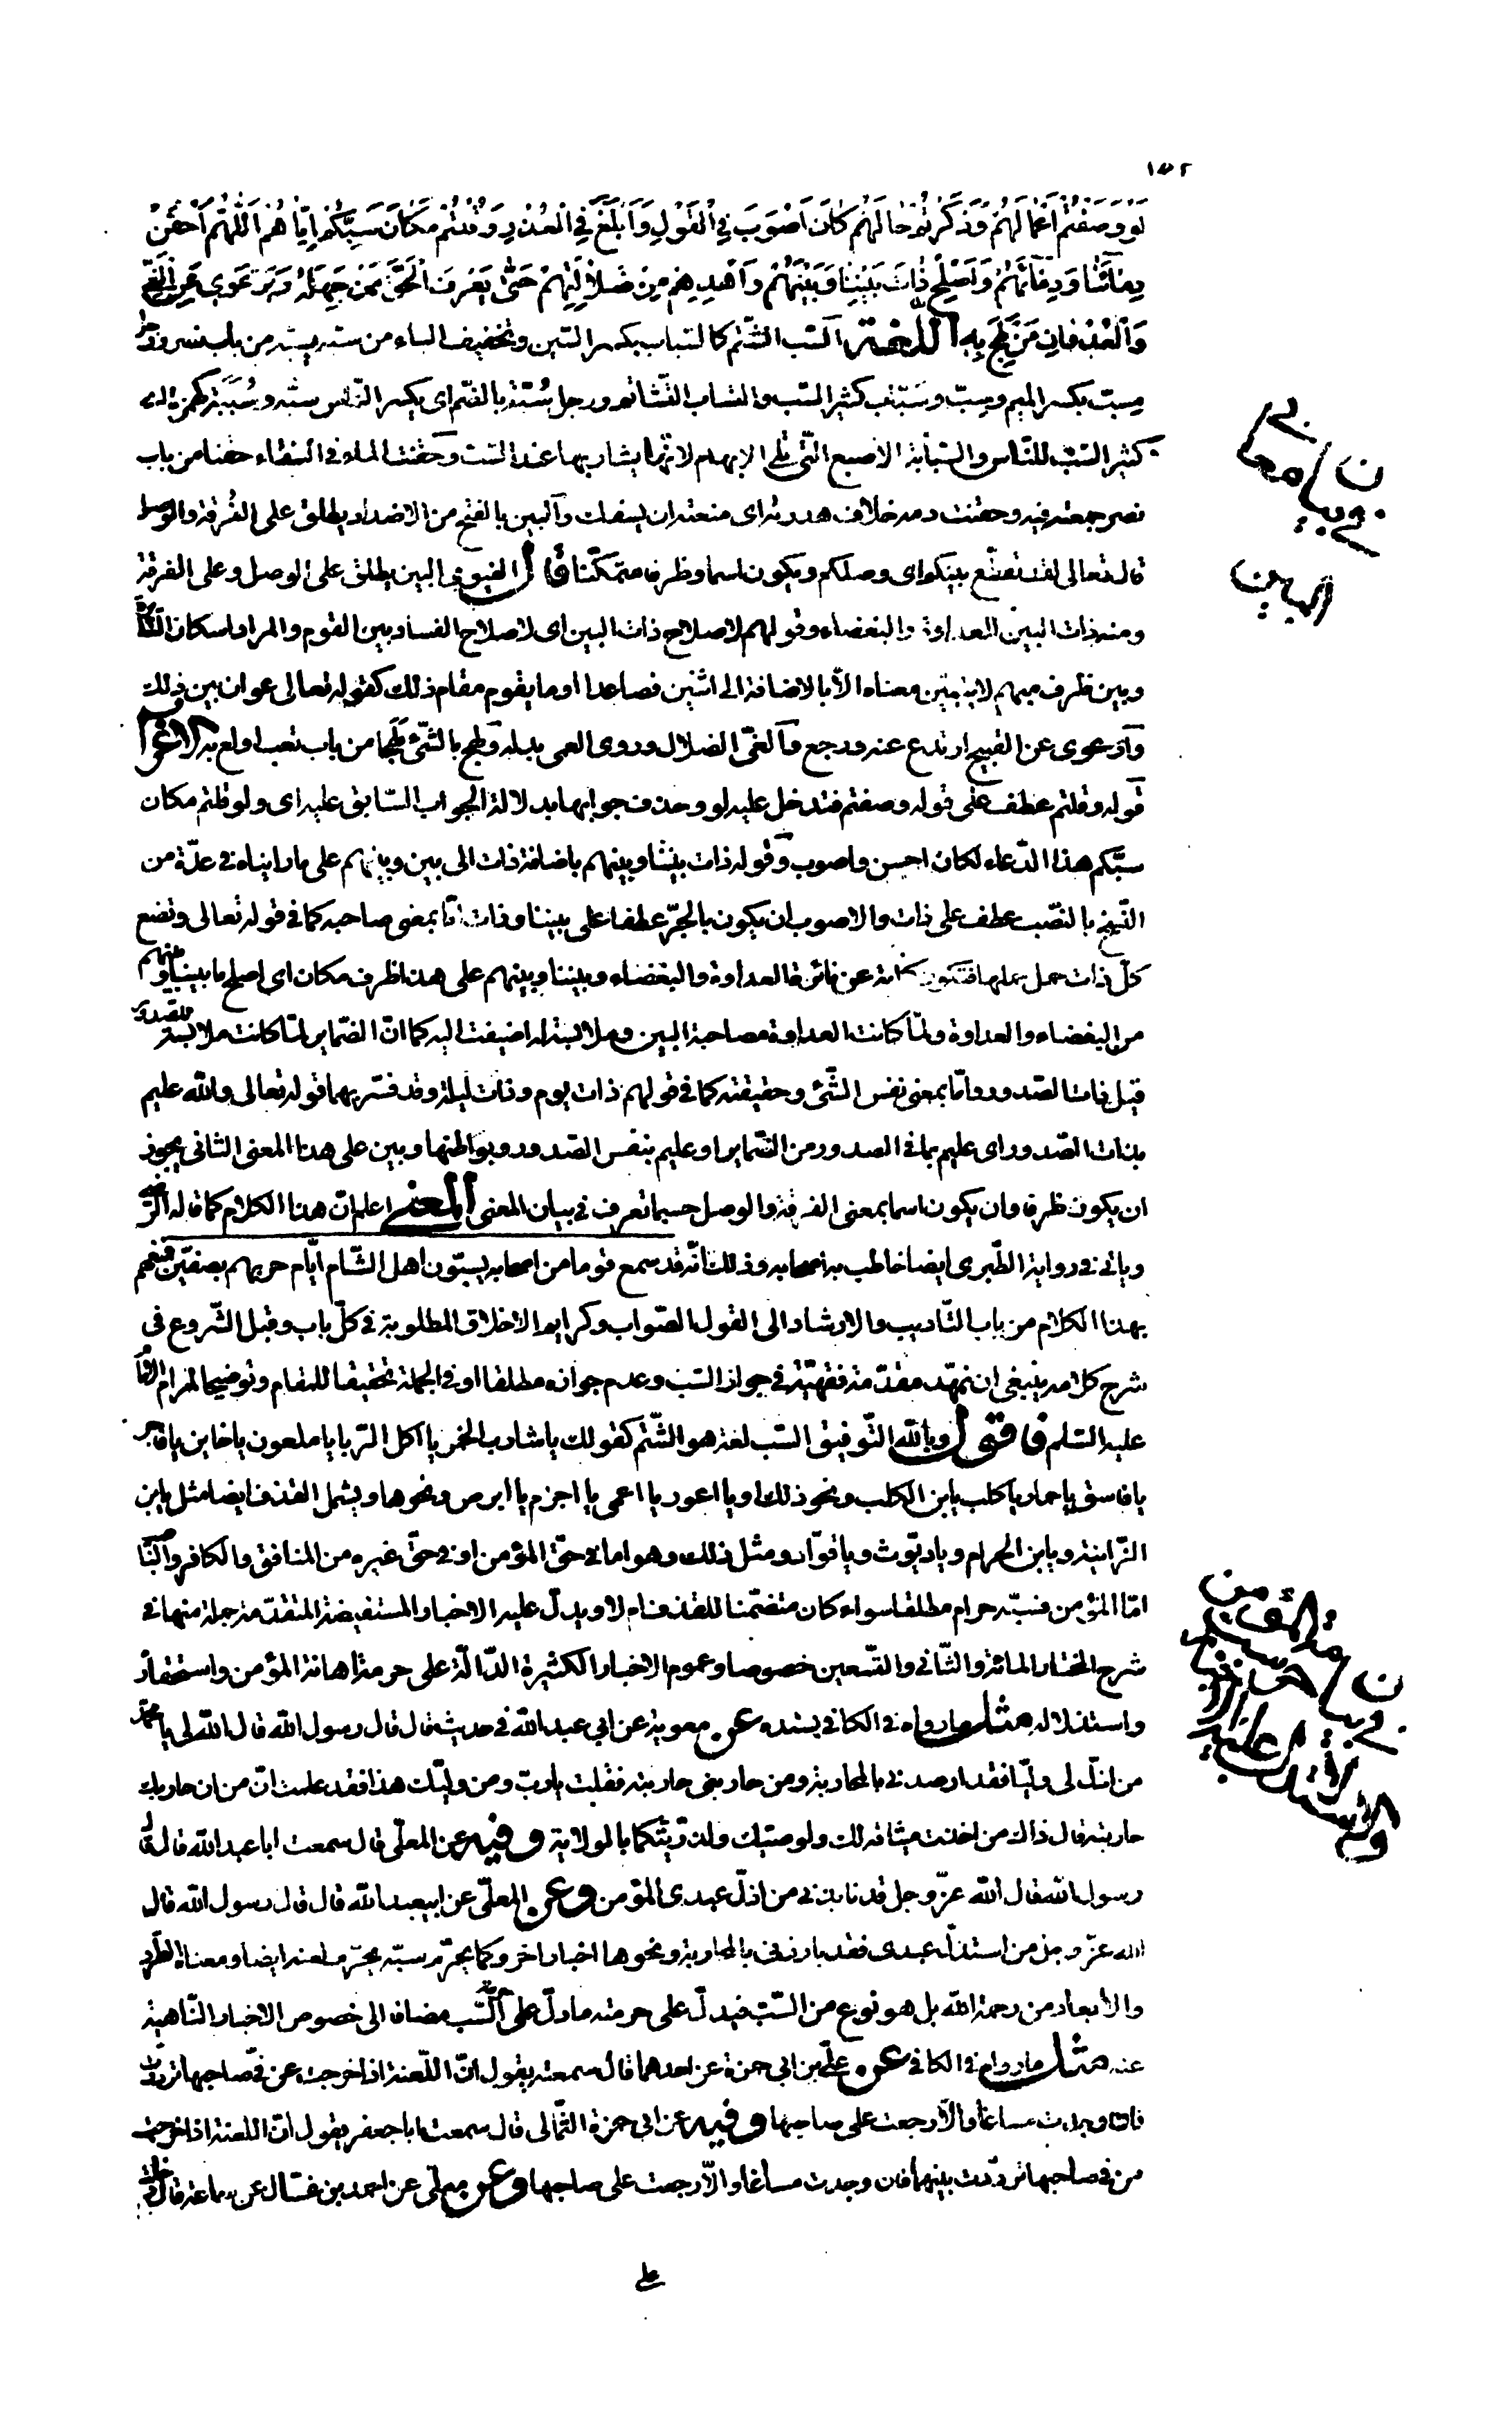 ١٥٢
لَو وَصَفتُم اَعمالَهُم وَذَكَرتُم حالَهُم كانَ اَصوَبَ فِي القَولِ وَاَبلَغَ فِي العُذرِ وَقُلتُم مَكانَ سَبِّكُم اِيّاهُم اَللّهُمَّ احقِن
دِمائَنا وَدِمائَهُم وَاَصلِح ذاتَ بَينِنا وَبَينِهِم وَاهدِهِم مِن ضَلالَتِهِم حَتّى يَعرِفَ الحَقَّ مَن جَهِلَهُ وَيَرعَوِي عَنِ الغَيِّ
وَالعُدوانِ مَن لَهِجَ بِهِ اللغة السّبّ الشّتم كالسّباب بكسر السّين وتخفيف الباء من سبّه يسبّه من باب نصر ورجل
مِسبّ بكسر الميم وسِبّ وسَبّاب كثير السّبّ والتساب التّشاتم ورجل سُبّة بالضّم اى يكسر النّاس سبّه وسُبَبَة كهمزة اى
كثير السّبّ للنّاس والسّبّابة الاصبع الّتي تلي الابهام لانّها يشار بها عند السّبّ وحقنت الماء في السّقاء حقنا من باب
نصر جمعته فيه وحقنت دمه خلاف هدرته اى منعته ان يسفك والبين بالفتح من الاضداد يطلق على الفُرقة والوصل
قال تعالى لقد تقطّع بينكم اى وصلكم ويكون اسما وظرفا متمكّنا قال الفيومي البين يطلق على الوصل وعلى الفرقة
ومنه ذات البين للعداوة والبغضاء وقولهم لاصلاح ذات البين اى لاصلاح الفساد بين القوم والمراد اسكان الثائرة
وبين ظرف مبهم لا يتبيّن معناه الّا بالاضافة الى اثنين فصاعدا او ما يقوم مقام ذلك كقوله تعالى عوان بين ذلك
وارعوى عن القبيح ارتدع عنه ورجع والغيّ الضلال وروى العمى بدله ولهج بالشّئ لَهَجا من باب تعب اولع به الاعراب
قوله وقلتم عطف على قوله وصفتم فتدخل عليه لو وحذف جوابها بدلالة الجواب السّابق عليه اى ولو قلتم مكان
سبّكم هذا الدّعاء لكان احسن واصوب وقوله ذات بيننا وبينهم باضافة ذات الى بين وبينهم على ما رايناه في عدّة من
النّسخ بالنصّب عطف على ذات والاصوب ان يكون بالجرّ عطفا على بيننا وذات امّا بمعنى صاحبه كما في قوله تعالى وتضع
كلّ ذات حمل حملها فتكون كناية عن نائرة العداوة والبغضاء وبيننا وبينهم على هذا ظرف مكان اى اصلح ما بيننا وبينهم
من البغضاء والعداوة ولمّا كانت العداوة مصاحبة البين وملابسة له اضيفت اليه كما انّ الضّماير لمّا كانت ملابسة للصّدور
قيل ذات الصّدور وامّا بمعنى نفس الشّئ وحقيقته كما في قولهم ذات يوم وذات ليلة وقد فسّر بهما قوله تعالى والله عليم
بذات الصّدور اى عليم بما في الصدور من الضّماير او عليم بنفس الصّدور وبواطنها وبين على هذا المعنى الثاني يجوز
ان يكون ظرفا وان يكون اسما بمعنى الفرقة والوصل حسبما تعرف في بيان المعنى المعنى اعلم انّ هذا الكلام كما قاله الرّضي
وياتي في رواية الطّبرى ايضا خاطب به اصحابه وذلك انّه قد سمع قوما من اصحابه يسبّون اهل الشّام ايّام حربهم بصفّين فمنعهم
بهذا الكلام من باب التّاديب والارشاد الى القول الصّواب وكرايم الاخلاق المطلوبة في كلّ باب وقبل الشّروع في
شرح كلامه ينبغي ان نمهّد مقدّمة فقهيّة في جواز السّبّ وعدم جوازه مطلقا او في الجملة تحقيقا للمقام وتوضيحا لمرام الامام
عليه السّلم فاقول وبالله التّوفيق السّب لغة هو الشّتم كقولك يا شارب الخمر يا آكل الرّبا يا ملعون يا خاين يا فاجر
يا فاسق يا حمار يا كلب يا بن الكلب ونحو ذلك او يا اعور يا اعمى يا اجزم يا ابرص ونحوها ويشمل القذف ايضا مثل يا بن
الزّانية ويا بن الحرام ويا ديّوث ويا قوّاد ومثل ذلك وهو اما في حقّ المؤمن او في حقّ غيره من المنافق والكافر والنّاصب
امّا المؤمن فسبّه حرام مطلقا سواء كان متضمّنا للقذف ام لا ويدلّ عليه الاخبار المستفيضة المتقدّمة جملة منها في
شرح المختار المائة والثّاني والتّسعين خصوصا وعموم الاخبار الكثيرة الدّالّة على حرمة اهانة المؤمن واستحقاره
واستذلاله مثل ما رواه في الكافي بسنده عن معوية عن ابي عبدالله في حديث قال قال رسول الله قال الله لى يا محمّد
من اذلّ لى وليّا فقد ارصدني بالمحاربة ومن حاربني حاربته فقلت يا ربّ ومن وليّك هذا فقد علمت انّ من حاربك
حاربته قال ذاك من اخذت ميثاقه لك ولوصيّك ولذرّيّتكما بالولاية وفيه عن المعلّى قال سمعت ابا عبدالله قال قال
رسول الله قال الله عزّ وجل قد نابذني من اذلّ عبدى المؤمن وعن المعلّى عن ابيعبدالله قال قال رسول الله قال
الله عزّ وجل من استذلّ عبدى فقد بارزني بالمحاربة ونحوها اخبار اخر وكما يحرّم سبّه يحرّم لعنه ايضا ومعناه الطّرد
والابعاد من رحمة الله بل هو نوع من السّبّ فيدلّ على حرمته ما دلّ على السّب مضافا الى خصوص الاخبار النّاهية
عنه مثل ما رواه في الكافي عن علىّ بن ابي حمزة عن احدهما قال سمعته يقول انّ اللّعنة اذا خرجت من في صاحبها تردّدت
فان وجدت مساغا والّا رجعت على صاحبها وفيه عن ابي حمزة الثّمالى قال سمعت ابا جعفر يقول انّ اللعنة اذا خرجت
من في صاحبها تردّدت بينهما فان وجدت مساغا والّا رجعت على صاحبها وعن علىّ عن احمد بن فضّال عن سماعة قال دخلت
على
في
بيان معانى
البين